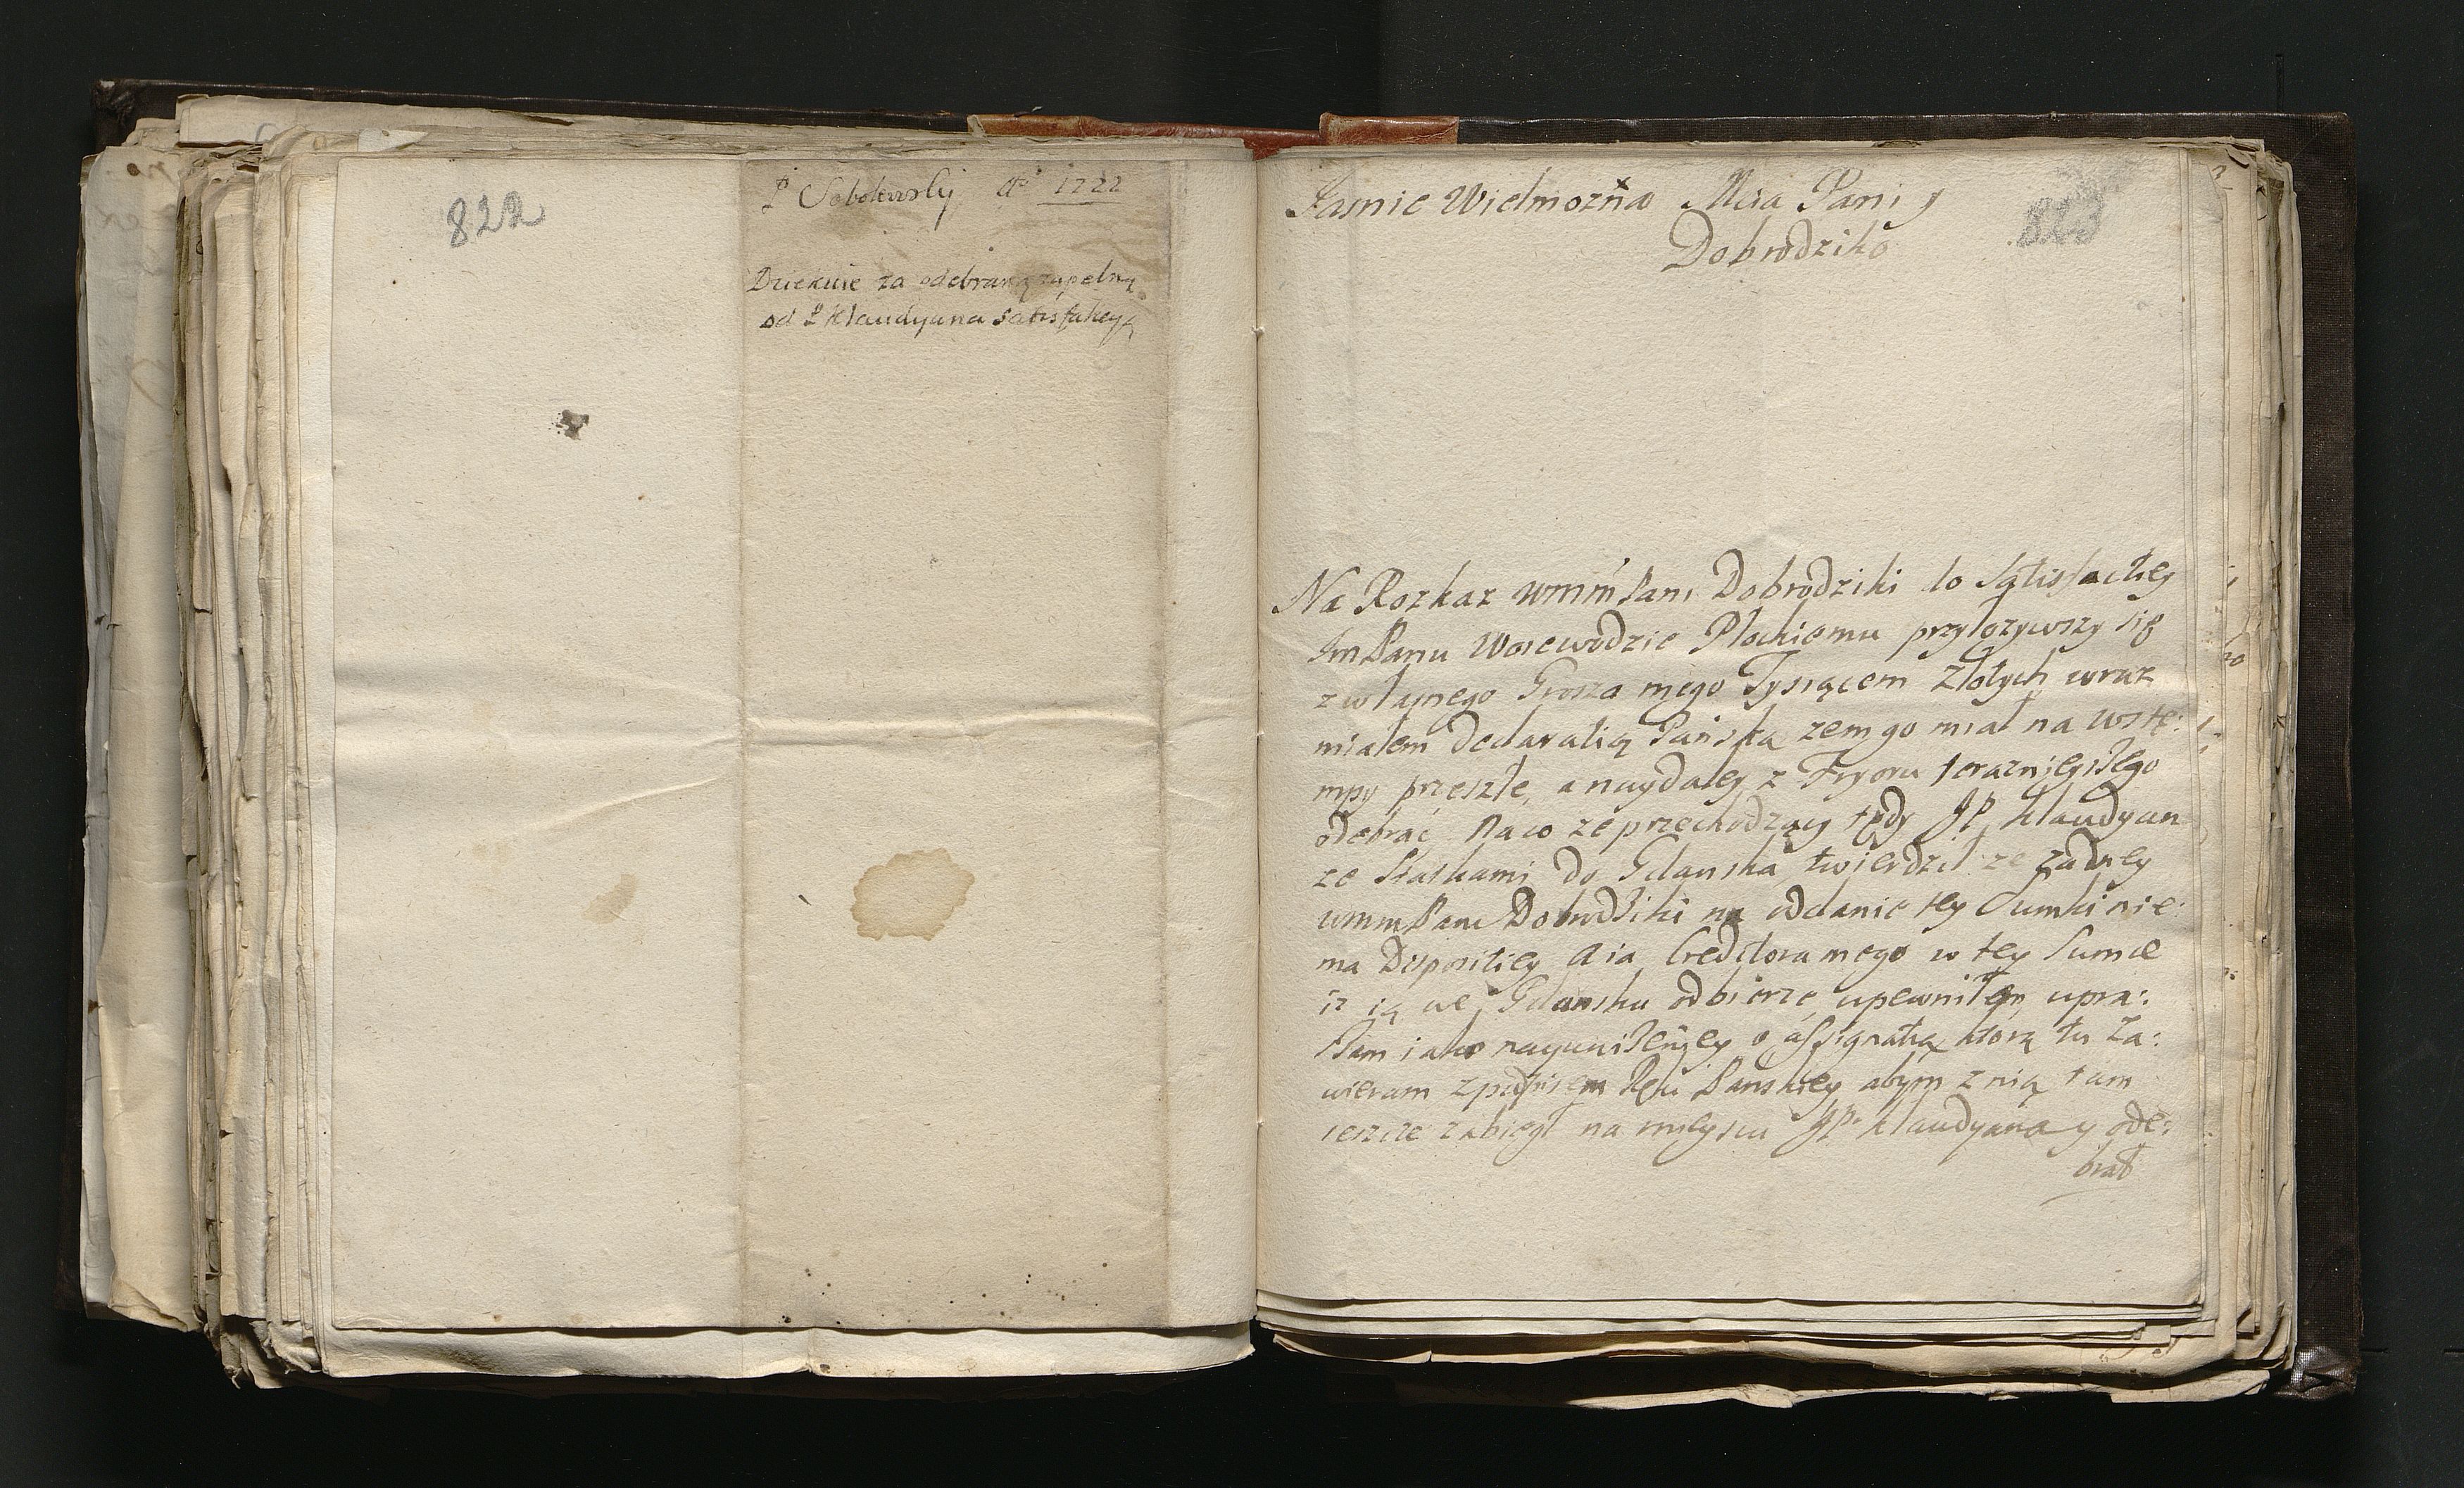 822
P Sobolewsky Aº 1722
Dziekuie za odebraną zupełną
od P Klaudyana satisfakcyą
823
Jasnie Wielmożna Mcia Pani y
Dobrodziko
Na Rozkaz WmmPani Dobrodziki lo Satisfactiey
ImPanu Woiewodzie Płockiemu przyłozywszy się
z własnego Grosza mego Tysiącem Złotych wraz
miałem Declaratią Pańską zem go miał na wstę:
mpy przeszłe, a naydaley z Fryoru teraznieyszego
odebrać. Naco ze przechodzący tędy JP. Klaudyan
ze Statkami do Gdanska twierdził ze zadney
WmmPani Dobrodziki na oddanie tey Sumki nie:
ma Dispositiey a ia Creditora mego w tey Sumie
iz ią we Gdansku odbierze upewniłem, upra:
szam iako nayunizeniey o assignatią ktorą tu Za:
wieram z podpisem Ręki Panskiey abym z nią tam
ieszcze zabiegł na mieyscu JP. Klaudyana y ode:
brał